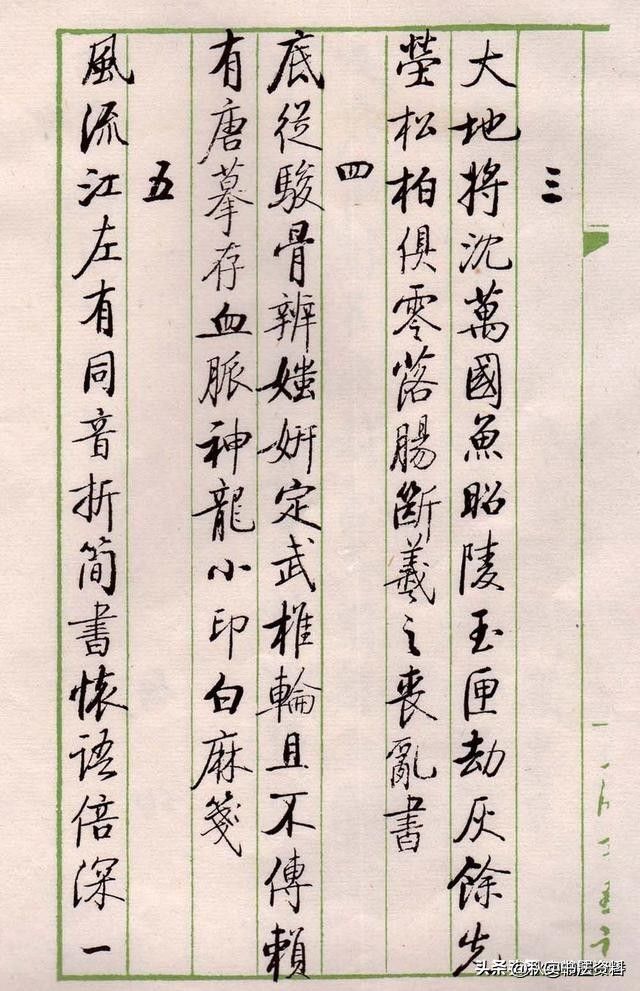 三
大地將沈萬國魚昭陵玉匣劫灰餘先
塋松柏俱零落腸斷羲之喪亂書
四
底從駿骨辨媸妍定武椎輪且不傳賴
有唐摹存血脈神龍小印白麻箋
五
風流江左有同音折簡書懷語倍深一
头条